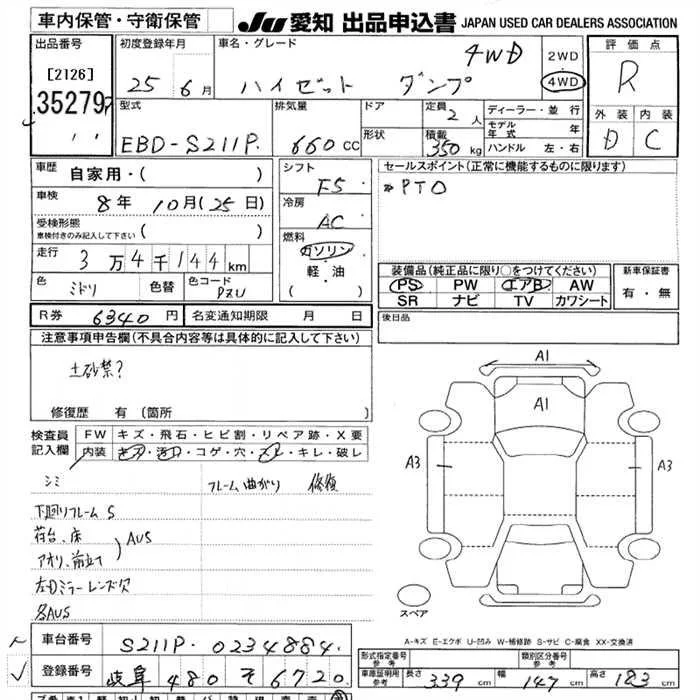 車内保管・守衛保管
JU 愛知 出品申込書 JAPAN USED CAR DEALERS ASSOCIATION
出品番号
[2126]
35279
初度登録年月
25 6月
車名・グレード
ハイゼット ダンプ 4WD
2WD
4WD
評価点
R
外装 内装
D C
型式
EBD-S211P
排気量
660 cc
ドア
形状
定員 2人
積載 350 kg
ディーラー・並行
モデル年式 年
ハンドル 左・右
車歴
自家用・( )
車検
8年 10月(25日)
受検形態
車検付きのみ記入して下さい ( )
走行
3万4千144 km
色 ミドリ 色替 色コード PZU
シフト F5
冷房 AC
燃料
ガソリン
軽・油
( )
セールスポイント(正常に機能するものに限ります)
PTO
装備品(純正品に限り〇をつけてください)
PS PW エアB AW
SR ナビ TV カワシート
新車保証書
有・無
R券 6340円 名変通知期限 月 日
後日品
注意事項申告欄(不具合内容等は具体的に記入して下さい)
土砂禁?
修復歴 有(箇所
検査員記入欄
FW キズ・飛石・ヒビ割・リペア跡・X要
内装 キズ・汚れ・コゲ・穴・スレ・キレ・破レ
シミ フレーム曲がり 修復
下回りフレームS
荷台、床
アオリ、前立て AUS
左Dミラーレンズ欠
各AUS
A1
A1
A3
A3
スペア
A-キズ E-エクボ U-凹み W-補修跡 S-サビ C-腐食 XX-交換済
車台番号 S211P-0234884
登録番号 岐阜 480 そ 6720
形式指定番号 参考
類別区分番号 参考
車庫証明用 参考 長さ 339 cm 幅 147 cm 高さ 183 cm